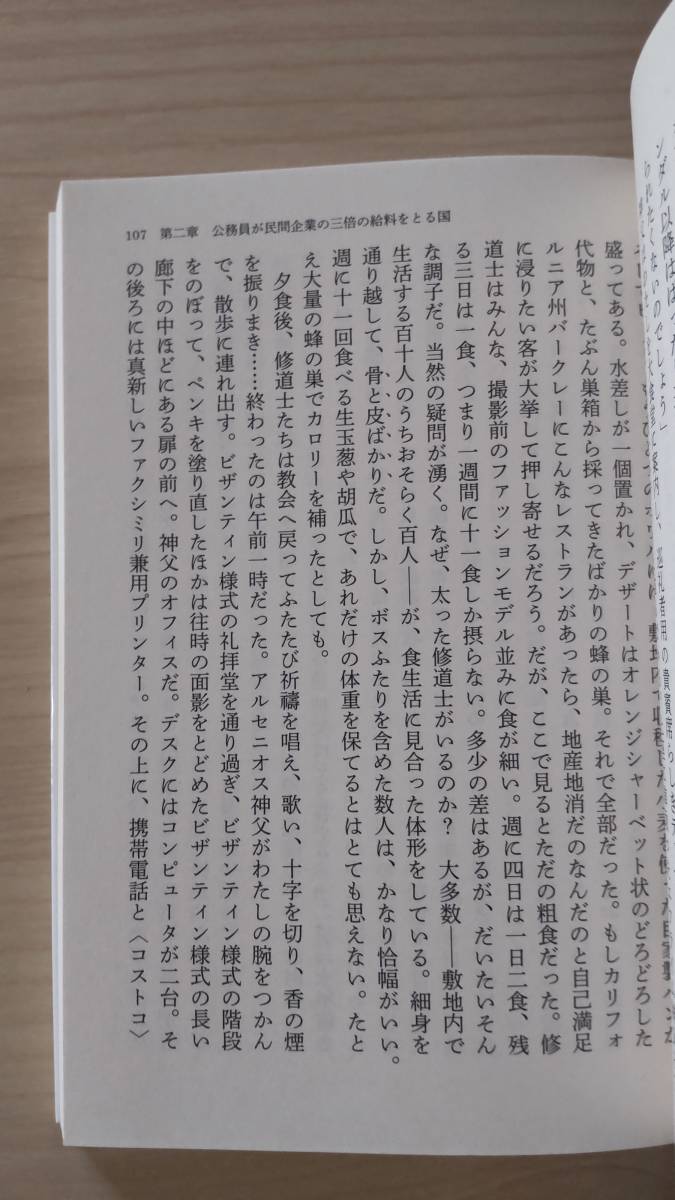 107 第二章 公務員が民間企業の三倍の給料をとる国
ンダル以降は
られたくないのでしょう」
盛ってある。水差しが一個置かれ、デザートはオレンジシャーベット状のどろどろした
代物と、たぶん巣箱から採ってきたばかりの蜂の巣。それで全部だった。もしカリフォ
ルニア州バークレーにこんなレストランがあったら、地産地消だのなんだのと自己満足
に浸りたい客が大挙して押し寄せるだろう。だが、ここで見るとただの粗食だった。修
道士はみんな、撮影前のファッションモデル並みに食が細い。週に四日は一日二食、残
る三日は一食、つまり一週間に十一食しか摂らない。多少の差はあるが、だいたいそん
な調子だ。当然の疑問が湧く。なぜ、太った修道士がいるのか？ 大多数——敷地内で
生活する百十人のうちおそらく百人——が、食生活に見合った体形をしている。細身を
通り越して、骨と皮ばかりだ。しかし、ボスふたりを含めた数人は、かなり恰幅がいい。
週に十一回食べる生玉葱や胡瓜で、あれだけの体重を保てるとはとても思えない。たと
え大量の蜂の巣でカロリーを補ったとしても。
夕食後、修道士たちは教会へ戻ってふたたび祈禱を唱え、歌い、十字を切り、香の煙
を振りまき……終わったのは午前一時だった。アルセニオス神父がわたしの腕をつかん
で、散歩に連れ出す。ビザンティン様式の礼拝堂を通り過ぎ、ビザンティン様式の階段
をのぼって、ペンキを塗り直したほかは往時の面影をとどめたビザンティン様式の長い
廊下の中ほどにある扉の前へ。神父のオフィスだ。デスクにはコンピュータが二台。そ
の後ろには真新しいファクシミリ兼用プリンター。その上に、携帯電話と〈コストコ〉